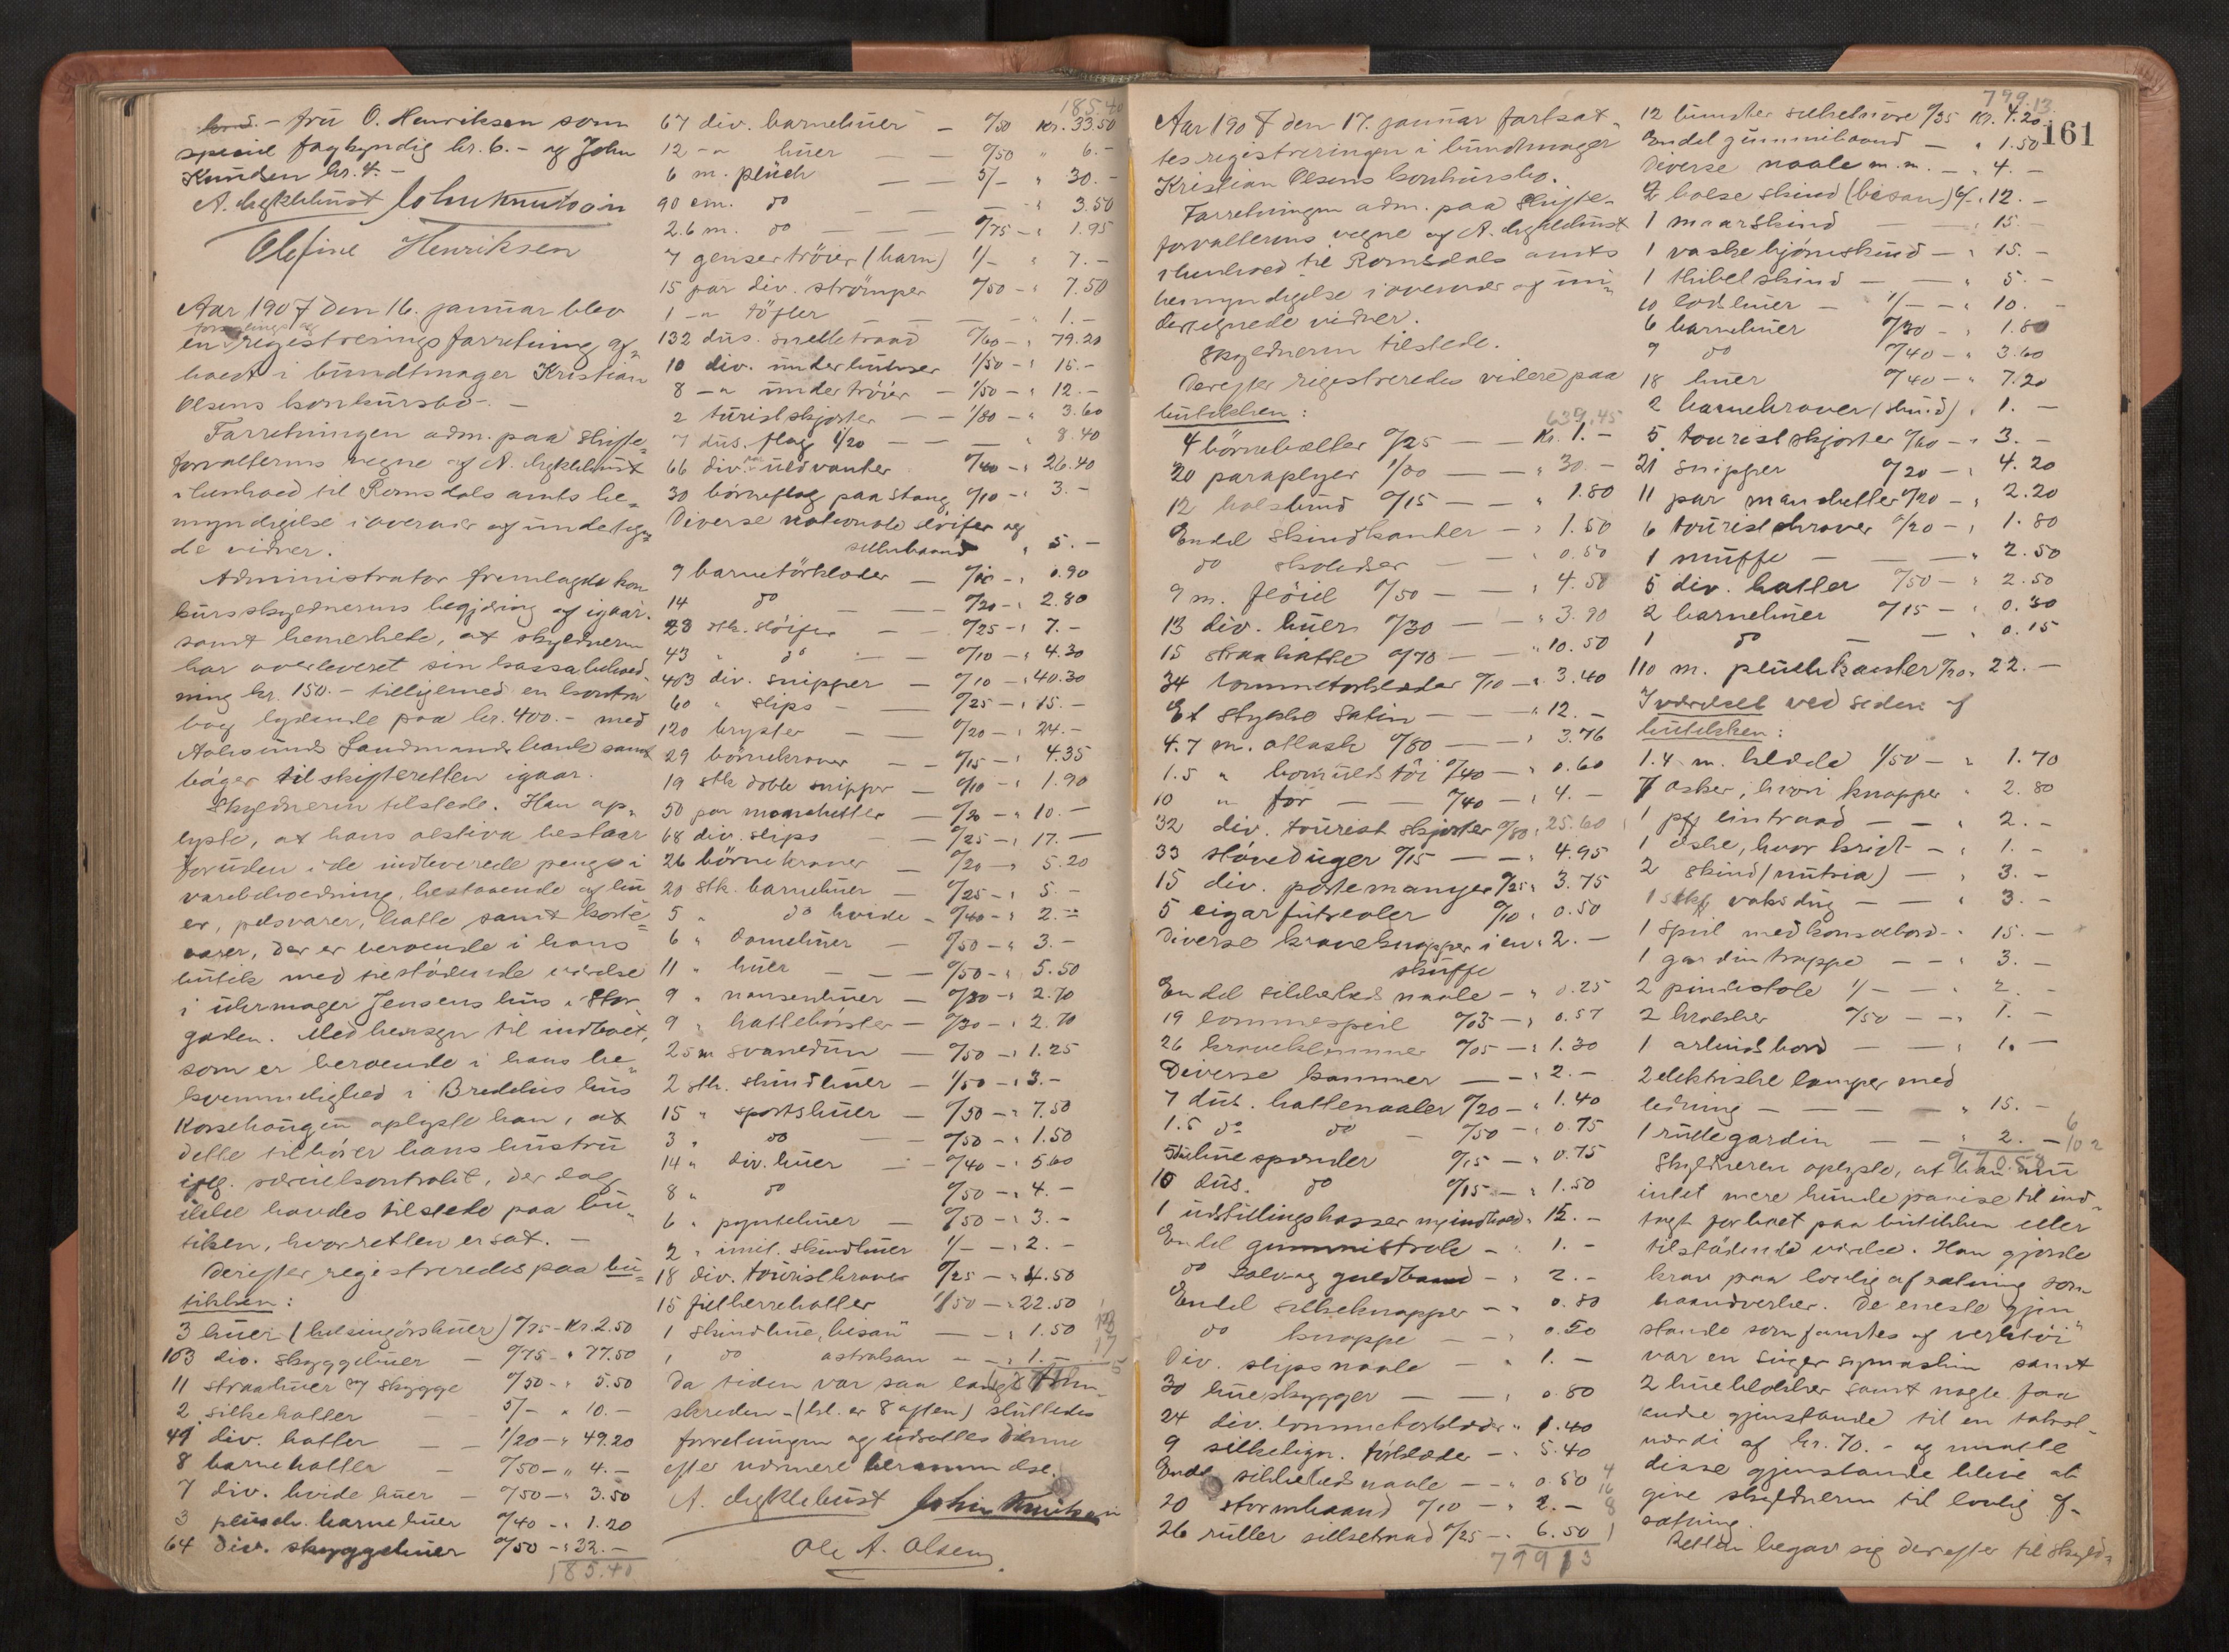 fru O. Henriksen som
speciel fagkyndig kr. 6.- og John
Knudsen kr. 4.-
A. Myklebust John Knudsen
Olefine Henriksen
Aar 1907 den 16. januar blev
en registreringsforretning af-
holdt i bundtmager Kristian
Olsens konkursbo. -
Forretningen adm. paa skifte-
forvalterens vegne af A. Myklebust
i henhold til Romsdals amts be-
myndigelse i overvær af undertegn-
de vidner.
Administrator fremlagde kon
kursskyldnerens begjæring af igaar.
samt bemerkede, at skyldneren
har overleveret sin kassabehold-
ning kr. 150.- tilligemed en kontra
bog lydende paa kr. 400.- med
Aalesunds Landmandsbank samt
bøger til skifteretten igaar.
Skyldneren tilstede. Han op-
lyste, at hans aktiva bestaar
foruden i de indleverede penge i
varebeholdning, bestaaende af hu
er, pelsvarer, hatte samt korte
varer, der er beroende i hans
butik med tilstødende værelse
i uhrmager Jensens hus i Stor
gaden. Med hensyn til indboet,
som er beroende i hans be-
kvemmelighed i Bredelis hus
Korsehougen oplyste han, at
dette tilhører hans hustru
ifølg. særeiekontrakt, der dog
ikke havdes tilstede paa bu-
tiken, hvor retten er sat. -
Derefter registreredes paa bu-
tikken:
3 huer (helsingørshuer) 0/75 - Kr. 2.50
103 div. skyggehuer - 0/75 - " 77.50
11 straahuer m/ skygge 0/50 - " 5.50
2 silkehatter - 5/- " 10.-
41 div. hatter - - 1/20 - " 49.20
8 barnehatter - 0/50 - " 4.-
7 div. hvide huer - 0/50 - " 3.50
3 plusch. barnehuer 0/40 - " 1.20
64 div. skyggehuer 0/50 - " 32.-
185.40
185.40
67 div. barnehuer - 0/50 Kr. 33.50
12 -"- huer - - 0/50 " 6.-
6 m. plüch - - 5/- " 30.-
90 cm. do - - - " 3.50
2.6 m. do - - 0/75 - " 1.95
7 gensertrøier (barn) 1/- " 7.-
15 par div. strømper 0/50 - " 7.50
1 -"- tøfler - - - " 1.-
132 dus. snelletraad 0/60 - " 79.20
10 div. underbukser 1/50 - " 15.-
8 -"- undertrøier - 1/50 - " 12.-
2 turistskjorter - - 1/80 - " 3.60
7 dus. flag 1/20 - - - " 8.40
66 div. uldvanter 0/40 - " 26.40
30 børneflag paa stang 0/10 - " 3.-
Diverse nationale sløifer og
silkebaand " 5.-
9 barnetørklæder - 0/10 - " 0.90
14 do - - 0/20 - " 2.80
28 stk. sløifer - - 0/25 - " 7.-
43 " do - 0/10 - " 4.30
403 div. snipper - 0/10 - " 40.30
60 " slips - - 0/25 - " 15.-
120 bryster - - 0/20 - " 24.-
29 børnekraver - - 0/15 - " 4.35
19 stk doble snipper - 0/10 - " 1.90
50 par manchetter - 0/20 - " 10.-
68 div. slips - 0/25 - " 17.-
26 børnekraver - 0/20 - " 5.20
20 stk. barnehuer - 0/25 - " 5.-
5 " do hvide - 0/40 - " 2.-
6 " damehuer - 0/50 - " 3.-
11 " huer - - 0/50 - " 5.50
9 " nansenhuer - 0/30 - " 2.70
9 " hattebørster - 0/30 - " 2.70
25 m svanedun - 0/50 - " 1.25
2 stk. skindhuer - 1/50 - " 3.-
15 " sportshuer - 0/50 - " 7.50
3 " do - - 0/50 - " 1.50
14 " div. huer - 0/40 - " 5.60
8 " do 0/50 - " 4.-
6 " pyntehuer - 0/50 - " 3.-
2 " imit. skindhuer 1/- - " 2.-
18 div. touristkraver 0/25 - " 4.50
15 filtherrehatter 1/50 - " 22.50
1 skindhue, bisam - - " 1.50
1 do astrakan - - " 1.-
Da tiden var saa langt frem-
skreden - (kl. er 8 aften) sluttedes
forretningen og udsattes denne
efter nærmere berammelse.
A. Myklebust John Knudsen
Ole A. Olsen
161
Aar 1907 den 17. januar fortsat-
tes registreringen i bundtmager
Kristian Olsens konkursbo.
Forretningen adm. paa skifte-
forvalterens vegne af A. Myklebust
i henhold til Romsdals amts
bemyndigelse i overvær af un-
dertegnede vidner.
Skyldneren tilstede.
Derefter registreredes videre paa
butikken:
639.45
4 børnebælter 0/25 - - Kr. 1.-
20 paraplyer 1/50 - - " 30.-
12 halsbind 0/15 - - " 1.80
Endel skindkanter - " 1.50
do - " 0.50
9 m. fløiel 0/50 - - " 4.50
13 div. huer 0/30 - - " 3.90
15 straahatte 0/70 - - " 10.50
34 lommetørklæder 0/10 - " 3.40
Et stykke satin - - " 12.-
4.7 m. atlask 0/80 - - " 3.76
1.5 " bomuldstøi 0/40 - " 0.60
10 " for - - 0/40 - " 4.-
32 div. touristskjorter 0/80 " 25.60
33 støveduger 0/15 - - " 4.95
15 div. portemonnæer 0/25 " 3.75
5 cigarfutteraler 0/10 " 0.50
Diverse kraveknapper i en " 2.-
skuffe
Endel sikkerhedsnaale - " 0.25
19 lommespeil 0/03 - " 0.57
26 kraveklemmer 0/05 - " 1.30
Diverse kammer - - " 2.-
7 dus. hattenaaler 0/20 - " 1.40
1.5 do do - 0/50 - " 0.75
5 huespænder 0/15 - " 0.75
10 dus. do 0/15 - " 1.50
1 udstillingskasser m/ indhold " 15.-
Endel gummistrale - " 1.-
do sølv og guldbaand - " 2.-
Endel silkeknapper - " 0.80
do knappe - - " 0.50
Div. slipsnaale - " 1.-
30 hueskygger - - " 0.80
24 div. lommetørklæder " 1.40
9 silkelign. tørklæder - " 5.40
Endel sikkerhedsnaale - - " 0.50
20 stormbaand 0/10 - " 2.-
26 ruller silketraad 0/25 - " 6.50
799.13
799.13
12 bunter silkesnore 0/35 Kr. 4.20
Endel gummibaand - " 1.50
Diverse naale m. m. - " 4.-
2 halse skind (bisam) 6/- " 12.-
1 maarskind - " 15.-
1 vaskebjørnskind - " 15.-
1 skind - - " 5.-
10 huer - 1/- - " 10.-
6 barnehuer 0/30 - " 1.80
9 do 0/40 - " 3.60
18 huer 0/40 - " 7.20
2 barnekraver (skind) " 1.-
5 touristskjorter 0/60 - " 3.-
21 snipper 0/20 - " 4.20
11 par manchetter 0/20 - " 2.20
6 touristkraver 0/20 - " 1.80
1 muffe - - " 2.50
5 div. hatter 0/50 - " 2.50
2 barnehuer 0/15 - " 0.30
1 do - - " 0.15
110 m. pluchkanter 0/20 " 22.-
I værelset ved siden af
butikken:
1.4 m. klæde 1/50 - " 1.70
7 æsker, hvori knapper " 2.80
1 lintraad - - " 2.-
1 æske, hvor kridt - " 1.-
2 skind (nutria) - " 3.-
1 stk voksdug - - " 3.-
1 speil med konsolbord - " 15.-
1 gardintrappe - - " 3.-
2 pindestole 1/- - " 2.-
2 krakker 0/50 - - " 1.-
1 arbeidsbord - - " 1.-
2 elektriske lamper med
ledning - - - " 15.-
1 rullegardin - - " 2.-
Skyldneren oplyste, at han nu
intet mere kunde paavise til ind-
tægt for boet paa butikken eller
tilstødende værelse. Han gjorde
krav paa lovlig afsætning som
haandverker. De eneste gjen
stande som fandtes af verktøi
var en Singer symaskin samt
2 hueblokker samt nogle faa
andre gjenstande til en total-
værdi af kr. 70.- og maatte
disse gjenstande blive at
give skyldneren til lovlig af-
sætning.
Retten begav sig derefter til skyld-